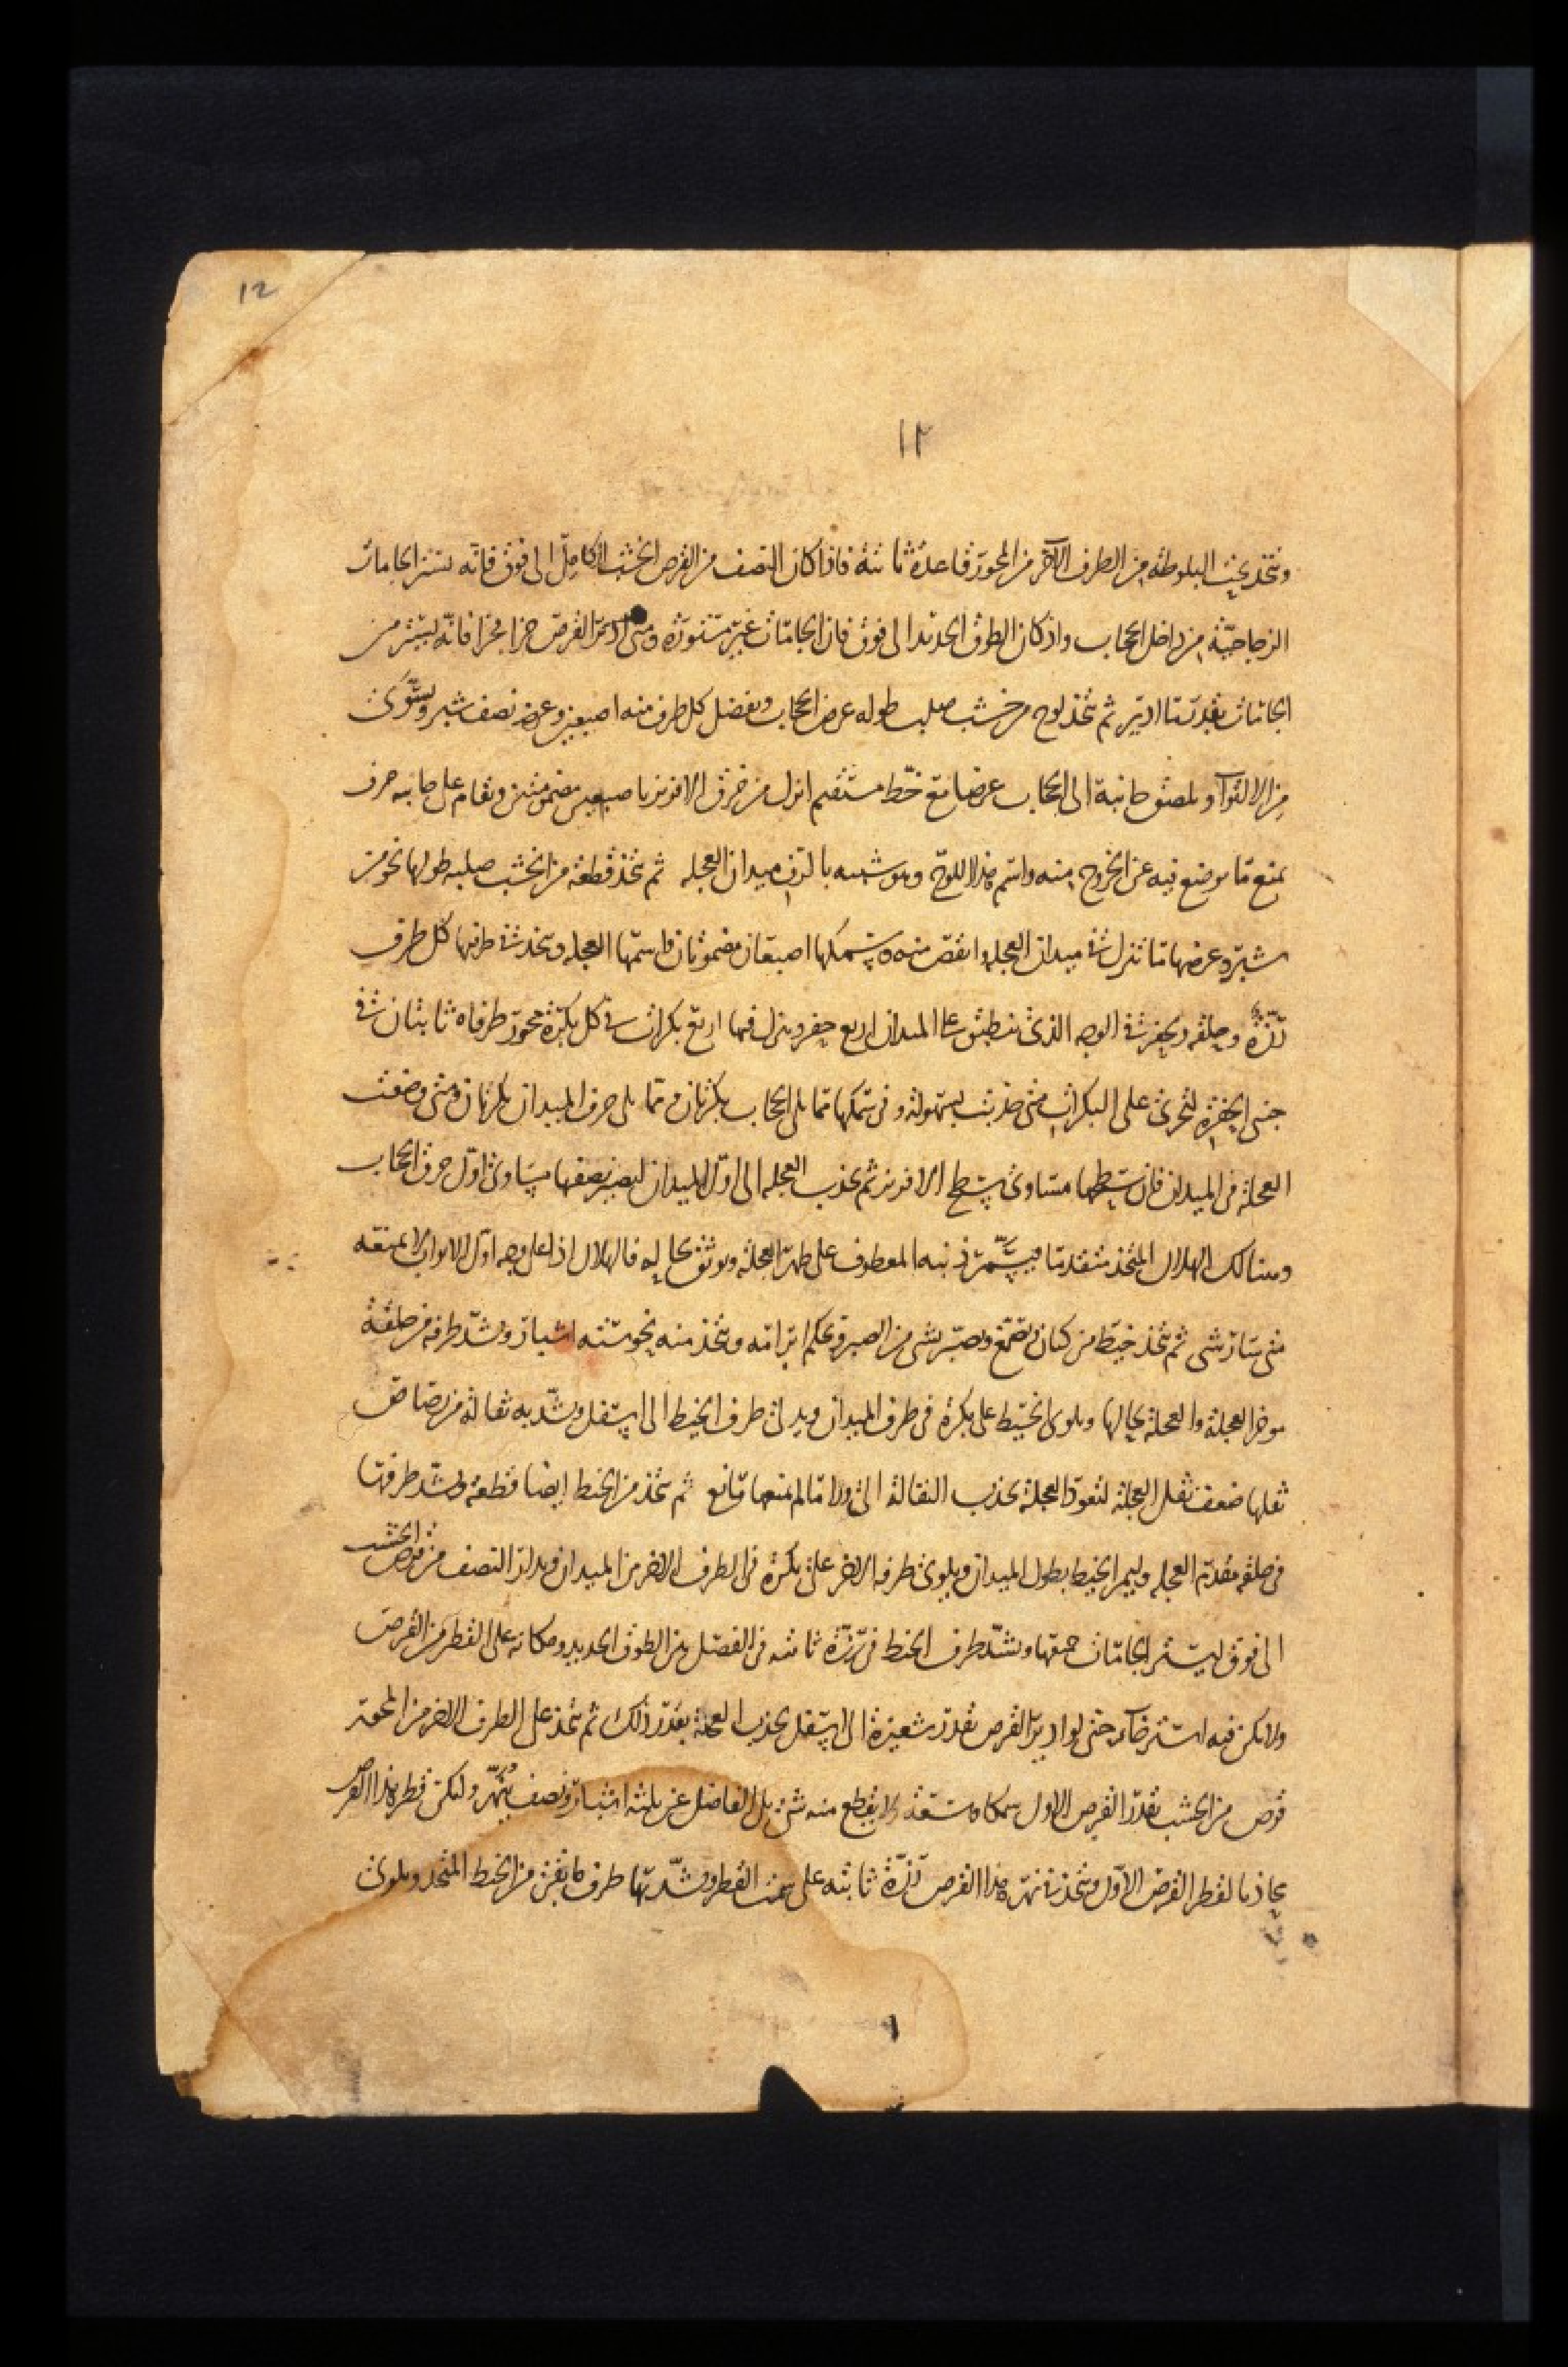 12
١٢
ويتخذ تحت البلوطة من الطرف الآخر من المحور قاعدة ثابتة فاذا كان النصف من القرص الخشب الكامل الى فوق فانه يستر الجامات
الزجاجية من داخل الحجاب واذا كان الطوق الحديد الى فوق فان الجامات غير مستورة ومتى ادير القرص جزا فجزا فانه يستر من
الجامات بقدر ما ادير ثم يتخذ لوح من خشب صلب طوله عرض الحجاب ويفضل كل طرف منه اصبعين وعرضه نصف شبر ويستوى
من الالتواء ويلصق جانبه الى الحجاب عرضا مع خط مستقيم انزل من خرق الافريز باصبعين مضمومتين ويقام على جانبه حرف
يمنع ما يوضع فيه عن الخروج منه واسم هذا اللوح وهو شبيه بالترف ميدان العجلة ثم يتخذ قطعة من الخشب صلبه طولها نحو من
شبر وعرضها ما تنزل في ميدان العجلة وانقص منه وسمكها اصبعان مضمومتان واسمها العجله ويتخذ في طرفيها كل طرف
رزة وحلقه ويحفر في الوجه الذى ينطبق على الميدان اربع حفر وينزل فيها اربع بكرات في كل بكرة محور طرفاه ثابتان في
جنبى الحفرة لتجرى على البكرات متى جذبت بسهولة وفى سمكها مما يلى الحجاب بكرتان ومما يلى حرف الميدان بكرتان ومتى وضعت
العجلة فى الميدان فان سطحها مساوى سطح الافريز ثم يجذب العجله الى اول الميدان ليصير نصفها يساوى اول حرف الحجاب
وهنالك الهلال المتخذ متقدما فيسمر ذنبه المعطوف على ظهر العجلة ويوثق بحاله فالهلال اذا على وجه اول الابواب لا يمنعه
متى سار شى ثم يتخذ خيط من كتان ويصمغ ويصبر بشى من الصبر ويحكم ابرامه ويتخذ منه نحو ستة اشبار ويشد طرفه فى حلقة
موخر العجلة والعجلة بحالها ويلوى الخيط على بكرة فى طرف الميدان ويدلى طرف الخيط الى اسفل ويشد به ثقالة من رصاص
ثقلها ضعف ثقل العجلة لتعود العجلة بجذب الثقالة الى ورا ما لم يمنعها مانع ثم يتخذ من الخيط ايضا قطعة ويشد طرفها
فى حلقه مقدم العجله وليمر الخيط بطول الميدان ويلوى طرفه الآخر على بكرة فى الطرف الاخر من الميدان ويدار النصف من قرص الخشب
الى فوق ليستر الجامات جميعها ويشد طرف الخيط فى رزة ثابته فى الفصل بين الطوق الحديد ومكانه على القطر من القرص
ولا يكن فيه استرخاء حتى لو ادير القرص بقدر شعيرة الى اسفل يجذب العجلة بقدر ذلك ثم يتخذ على الطرف الاخر من المحور
قرص من الخشب بقدر القرص الاول سمكا وسعة ولا يقطع منه شى بل الفاضل عن ثلثة اشبار ونصف ونهر وليكن قطر هذا القرص
محاذيا لقطر القرص الاول ويتخذ فى نهر هذا القرص رزة ثابته على سمت القطر ويشد بها طرف ما بقى من الخيط المتخذ ويلوى